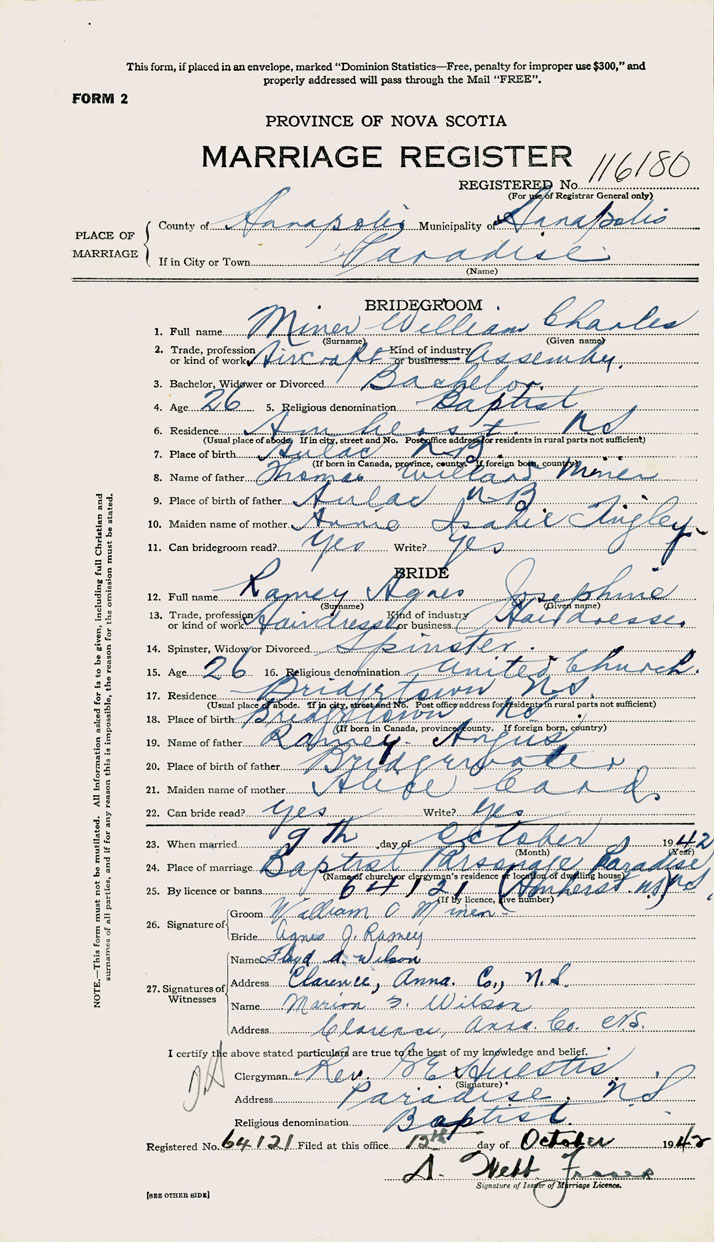 This form, if placed in an envelope, marked "Dominion Statistics—Free, penalty for improper use $300," and
properly addressed will pass through the Mail "FREE".
FORM 2
PROVINCE OF NOVA SCOTIA
MARRIAGE REGISTER
REGISTERED No. 116180
(For use of Registrar General only)
PLACE OF MARRIAGE
County of Annapolis Municipality of Annapolis
If in City or Town Paradise
(Name)
BRIDEGROOM
1. Full name Miner William Charles
(Surname) (Given name)
2. Trade, profession or kind of work Aircraft Kind of industry or business Assembly.
3. Bachelor, Widower or Divorced Bachelor.
4. Age 26 5. Religious denomination Baptist
6. Residence Amherst NS
(Usual place of abode. If in city, street and No. Post office address for residents in rural parts not sufficient)
7. Place of birth Aulac NB
(If born in Canada, province, county. If foreign born, country)
8. Name of father Thomas Willard Miner
9. Place of birth of father Aulac NB
10. Maiden name of mother Annie Tingley
11. Can bridegroom read? Yes Write? Yes
BRIDE
12. Full name Ramey Agnes Josephine
(Surname) (Given name)
13. Trade, profession or kind of work Hairdresser Kind of industry or business Hairdresser
14. Spinster, Widow or Divorced Spinster.
15. Age 26 16. Religious denomination United Church.
17. Residence Bridgetown N.S.
(Usual place of abode. If in city, street and No. Post office address for residents in rural parts not sufficient)
18. Place of birth Bridgetown NS.
(If born in Canada, province, county. If foreign born, country)
19. Name of father Ramey Angus
20. Place of birth of father Bridgewater
21. Maiden name of mother Alice
22. Can bride read? Yes Write? Yes
23. When married 9th day of October 1942
(Month) (Year)
24. Place of marriage Baptist Parsonage Paradise NS,
(Name of church or clergyman's residence or location of dwelling house)
25. By licence or banns 64121 (Amherst NS)
(If by licence, give number)
26. Signature of
Groom William C Miner
Bride Agnes J. Ramey
27. Signatures of Witnesses
Name Floyd A. Wilson
Address Clarence, Anna. Co., N.S.
Name Marion Wilson
Address Clarence, Anna. Co. N.S.
I certify the above stated particulars are true to the best of my knowledge and belief.
Clergyman Rev. Huestis
(Signature)
Address Paradise, NS
Religious denomination Baptist.
Registered No. 64121 Filed at this office 12th day of October 1942
A. Webb Fraser
Signature of Issuer of Marriage Licence.
[SEE OTHER SIDE]
NOTE.—This form must not be mutilated. All information asked for is to be given, including full Christian and
surnames of all parties, and if for any reason this is impossible, the reason for the omission must be stated.